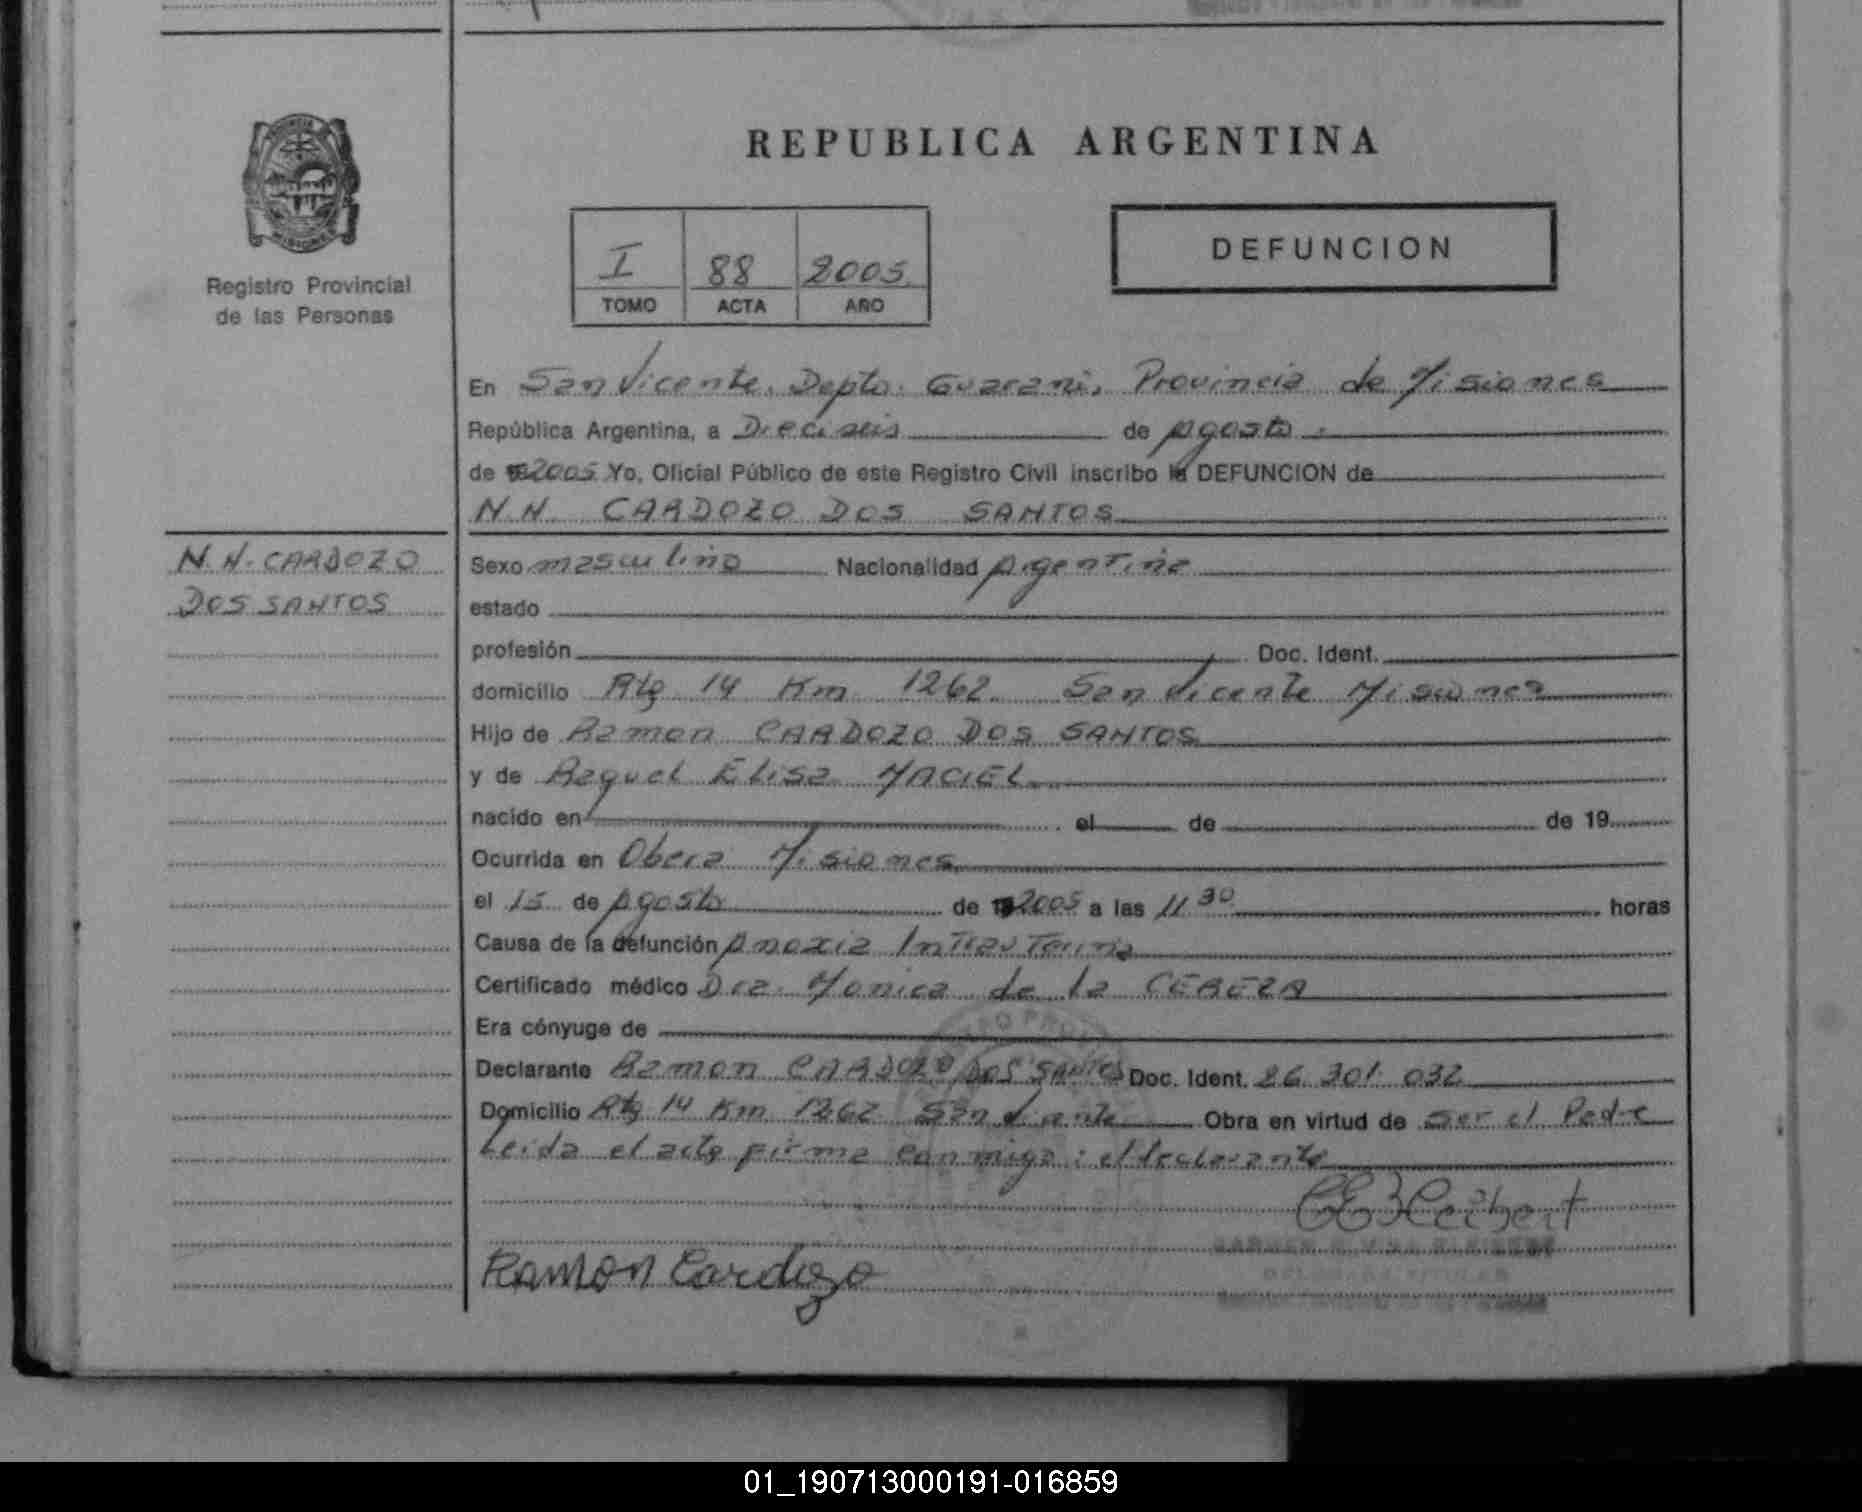 REPUBLICA ARGENTINA
Registro Provincial
de las Personas
I 88 2005
TOMO ACTA AÑO
DEFUNCION
En San Vicente, Depto. Guarani, Provincia de Misiones
República Argentina, a Dieciseis de Agosto
de 2005 Yo, Oficial Público de este Registro Civil inscribo la DEFUNCION de
N.N. CARDOZO DOS SANTOS
N.N. CARDOZO
DOS SANTOS
Sexo masculino Nacionalidad Argentina
estado
profesión Doc. Ident.
domicilio Rta 14 Km 1262 San Vicente Misiones
Hijo de Ramon CARDOZO DOS SANTOS
y de Raquel Elisa MACIEL
nacido en el de de 19
Ocurrida en Obera Misiones
el 15 de Agosto de 2005 a las 11 30 horas
Causa de la defunción Anoxia Intrauterina
Certificado médico Dra. Monica de la
Era cónyuge de
Declarante Ramon CARDOZO DOS SANTOS Doc. Ident. 26 301 032
Domicilio Rta 14 Km 1262 San Vicente Obra en virtud de ser el Padre
Leida el acta firma conmigo: el declarante
Ramon Cardozo
01_190713000191-016859